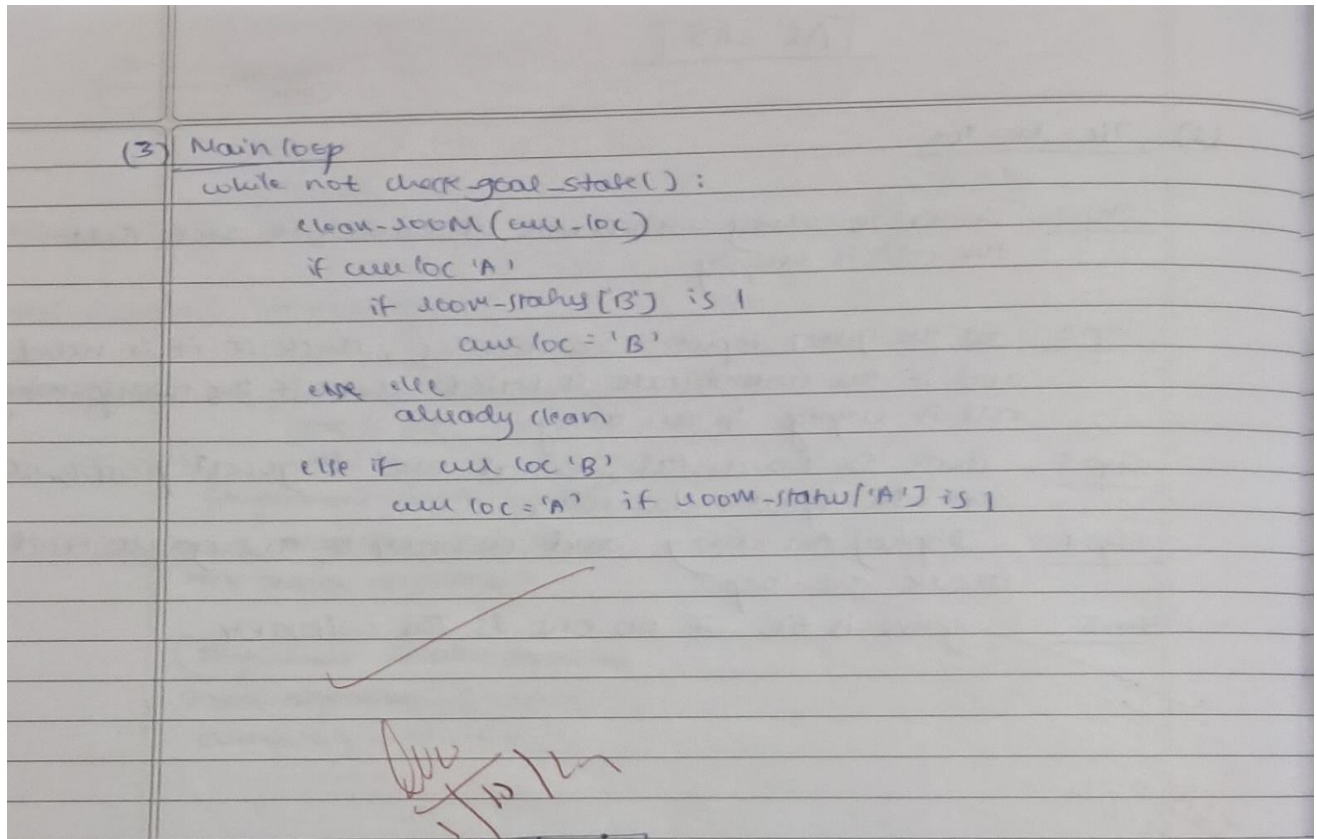 (3) Main loop
while not check_goal_state() :
clean-room (curr-loc)
if curr loc 'A'
if room-status['B'] is 1
curr loc = 'B'
else else
already clean
else if curr loc 'B'
curr loc = 'A' if room-status['A'] is 1